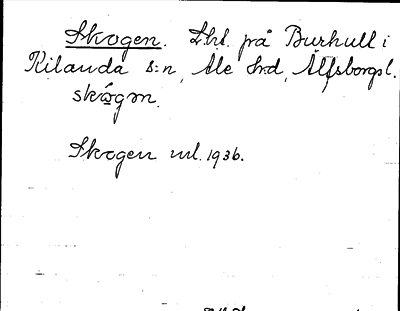 Skogen. Lht. på Burhull i
Kilanda s:n, Ale hrd, Älfsborgs l.
skógm.
Skogen ml. 1936.